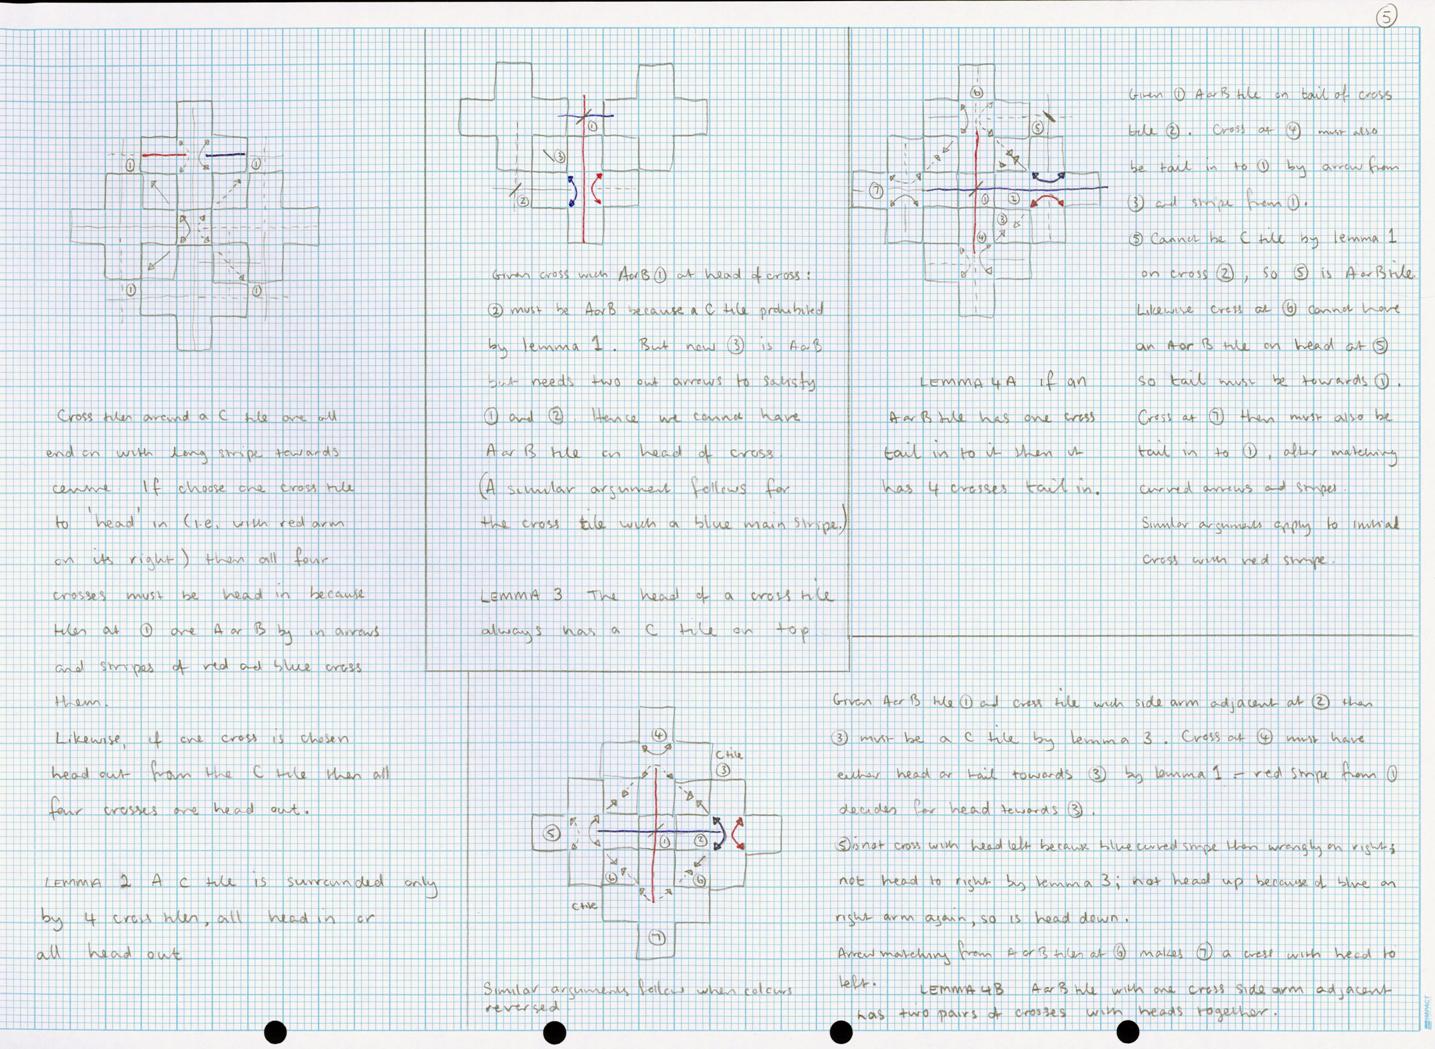 5
Cross tiles around a C tile are all
end on with long stripe towards
centre If choose one cross tile
to 'head' in (i.e. with red arm
on its right) then all four
crosses must be head in because
tiles at ① are A or B by in arrows
and stripes of red and blue cross
them.
Likewise, if one cross is chosen
head out from the C tile then all
four crosses are head out.
LEMMA 2 A C tile is surrounded only
by 4 cross tiles, all head in or
all head out
Given cross with A or B ① at head of cross:
② must be A or B because a C tile prohibited
by lemma 1. But now ③ is A or B
but needs two out arrows to satisfy
① and ②. Hence we cannot have
A or B tile on head of cross.
(A similar argument follows for
the cross tile with a blue main stripe.)
LEMMA 3 The head of a cross tile
always has a C tile on top
Given ① A or B tile on tail of cross
tile ②. Cross at ④ must also
be tail in to ① by arrow from
③ and stripe from ①.
⑤ Cannot be C tile by lemma 1
on cross ②, so ⑤ is A or B tile.
Likewise cross at ⑥ cannot have
an A or B tile on head at ⑤
so tail must be towards ①.
Cross at ⑦ then must also be
tail in to ①, after matching
curved arrows and stripes.
Similar arguments apply to initial
cross with red stripe.
LEMMA 4A If an
A or B tile has one cross
tail in to it then it
has 4 crosses tail in.
C tile
③
④
⑤
①
②
⑥
⑥
C tile
⑦
Similar arguments follow when colours
reversed
Given A or B tile ① and cross tile with side arm adjacent at ② then
③ must be a C tile by lemma 3. Cross at ④ must have
either head or tail towards ③ by lemma 1 - red stripe from ①
decides for head towards ③.
⑤ is not cross with head left because blue curved stripe then wrongly on right;
not head to right by lemma 3; not head up because of blue on
right arm again, so is head down.
Arrow matching from A or B tiles at ⑥ makes ⑦ a cross with head to
left. LEMMA 4B A or B tile with one cross side arm adjacent
has two pairs of crosses with heads together.